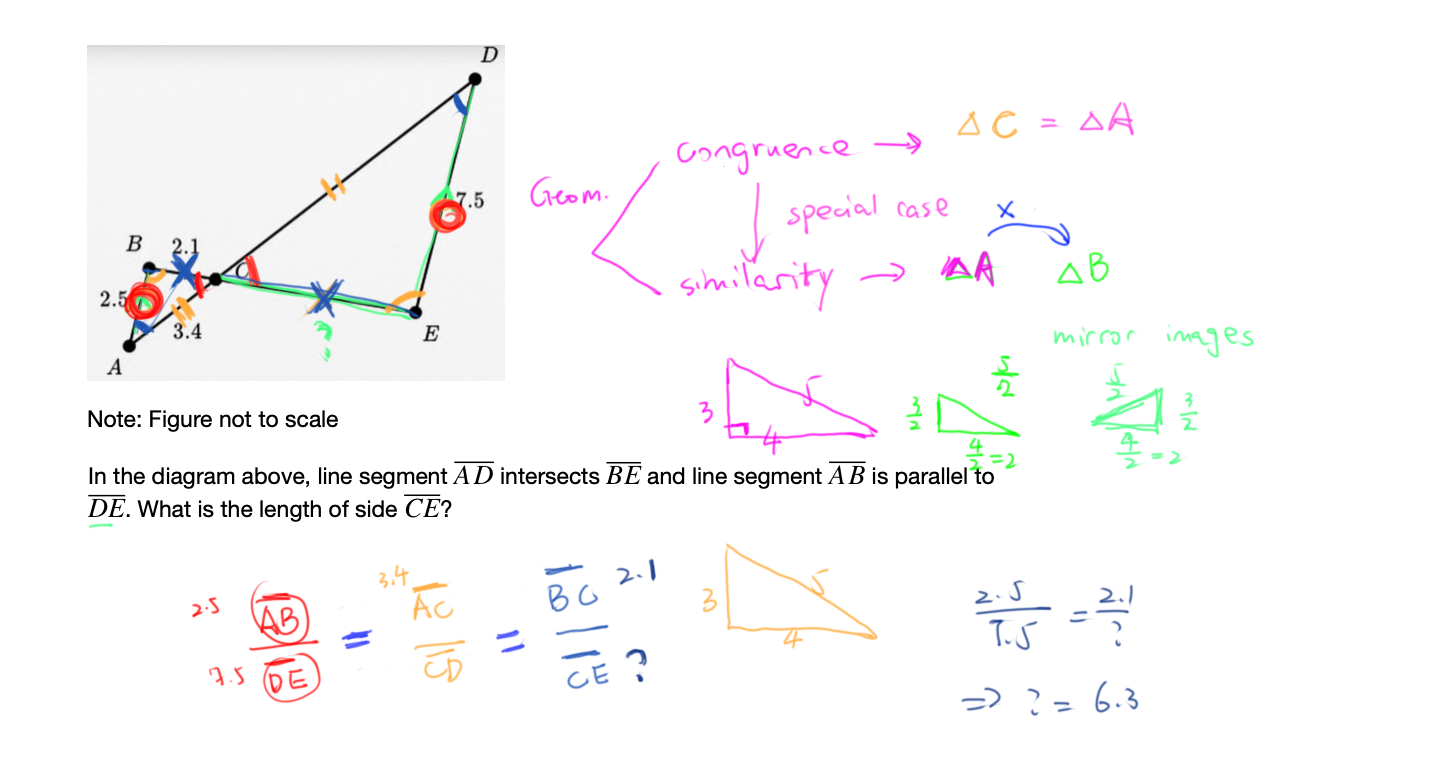 D
7.5
B
2.1
C
2.5
3.4
?
E
A
Note: Figure not to scale
In the diagram above, line segment AD intersects BE and line segment AB is parallel to
DE. What is the length of side CE?
Geom.
congruence → △C = △A
special case
x
similarity → △A △B
mirror images
3
5
4
3/2
5/2
4/2=2
5/2
3/2
4/2=2
2.5 AB/7.5 DE = 3.4 AC/CD = BC 2.1/CE ?
3
5
4
2.5/7.5 = 2.1/?
=> ? = 6.3